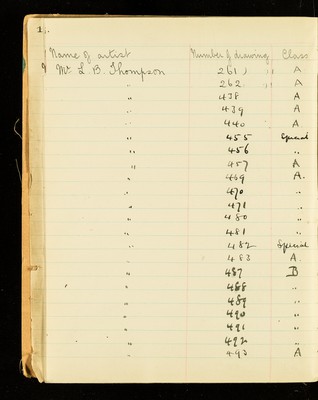 1.
Name of artist Number of drawing Class
Mr. L. B. Thompson 261 A
" 262 A
" 438 A
" 439 A
" 440 A
" 455 Special
" 456 "
" 457 A
" 469 A.
" 470 "
" 471 "
" 480 "
" 481 "
" 482 Special
" 483 A.
" 487 B
" 488 "
" 489 "
" 490 "
" 491 "
" 492 "
" 493 A